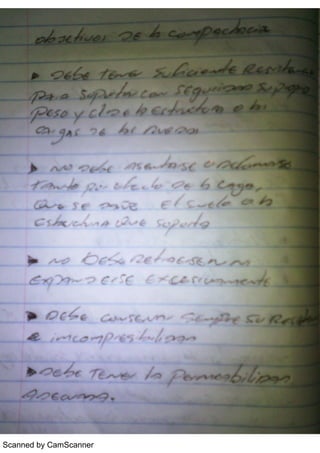 objetivos de la compactacion
▸ DEBE TENER Suficiente Resistencia
para soportar con seguridad su propio
peso y el de la estructura o las
cargas de las ruedas
▸ no debe asentarse o deformarse
tanto por efecto de la carga,
que se dañe El suelo o la
estructura que soporta
▸ no Debe Retraerse ni
EXPANDERSE EXCESIVAMENTE
▸ Debe conservar siempre su Resistencia
e incompresibilidad
▸ Debe Tener la permeabilidad
Adecuada.
Scanned by CamScanner